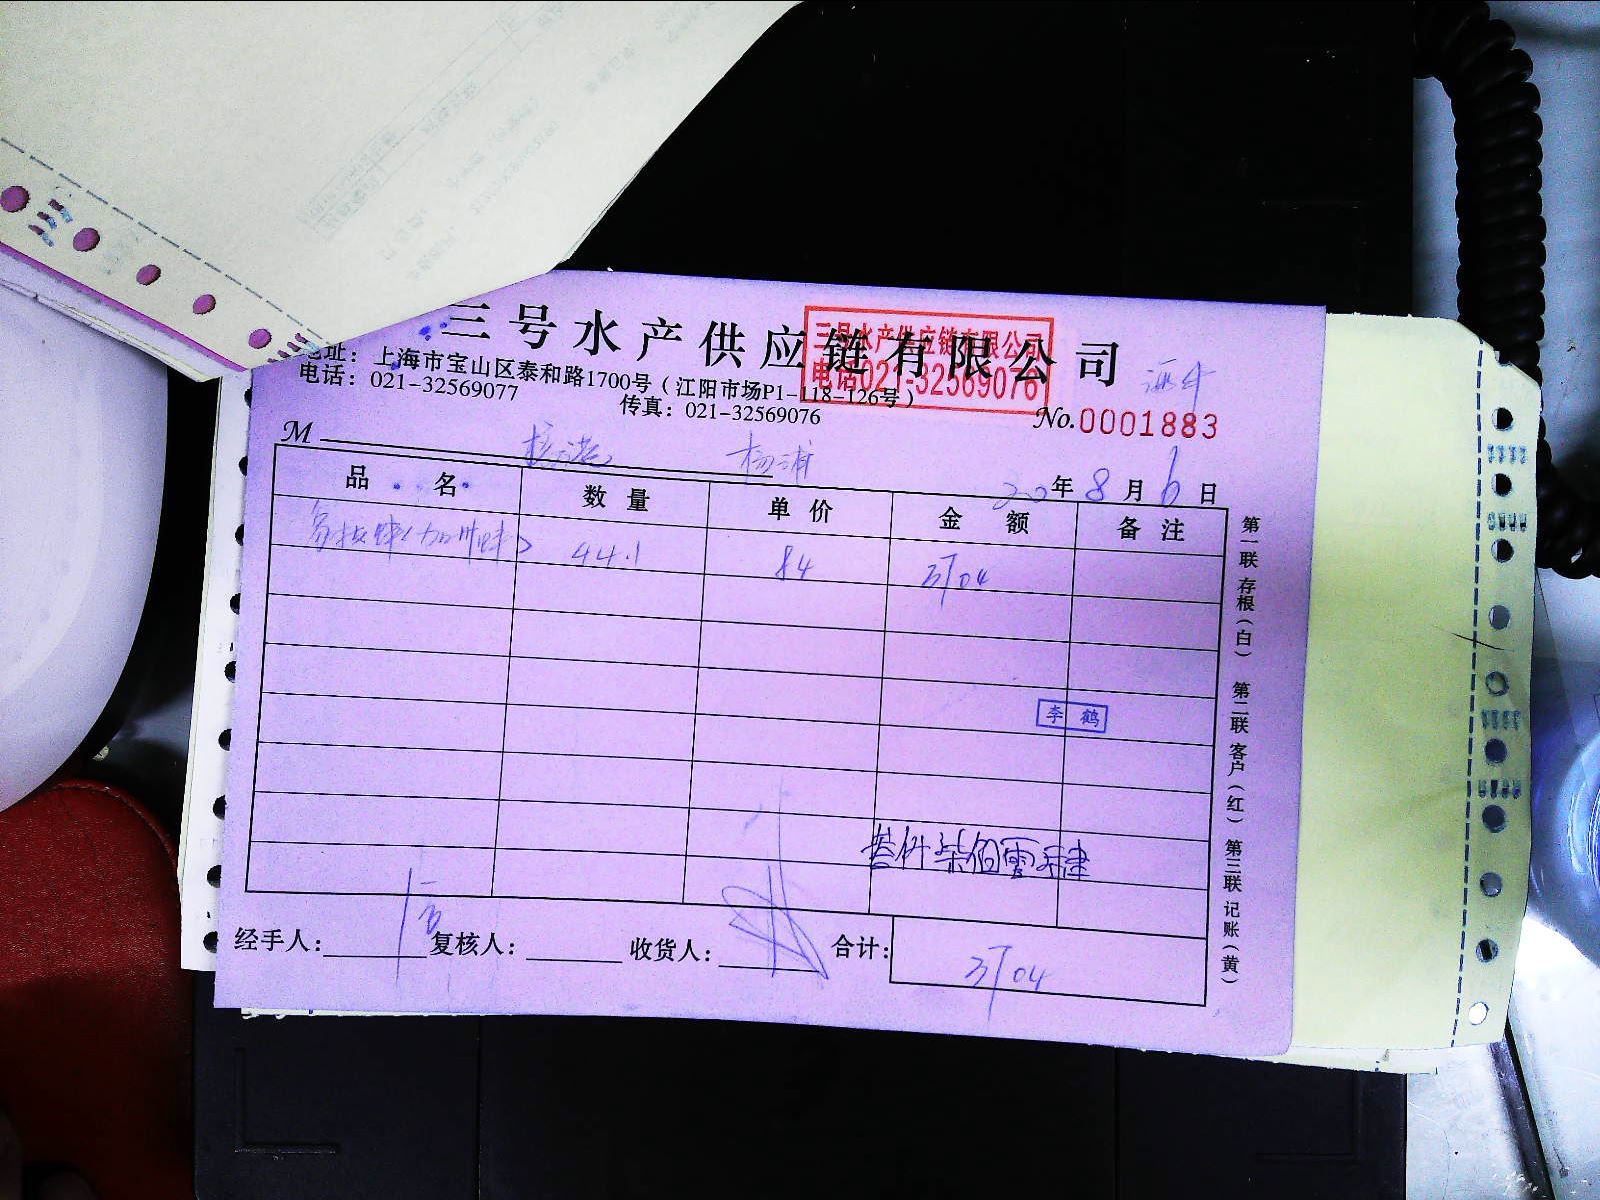 三号水产供应链有限公司
三号水产供应链有限公司
电话021-32569076
地址：上海市宝山区泰和路1700号（江阳市场P1-118-126号）
电话：021-32569077
传真：021-32569076
No.0001883
M 杨浦
20年8月6日
品名 数量 单价 金额 备注
44.1 84 3704
李鹤
叁仟柒佰零肆
经手人： 复核人： 收货人： 合计： 3704
第一联 存根（白） 第二联 客户（红） 第三联 记账（黄）